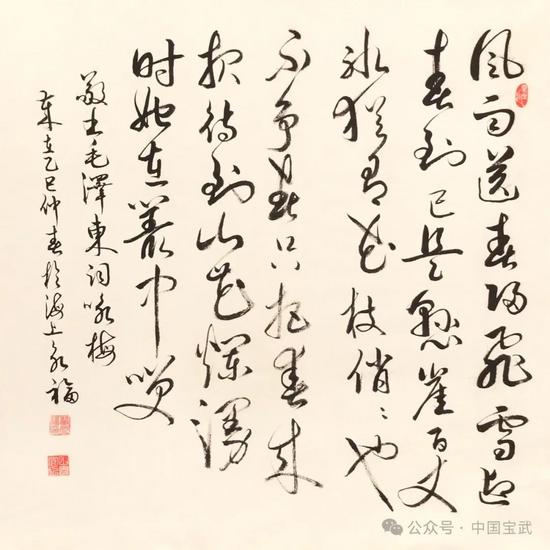 风雨送春归飛雪迎
春到已是懸崖百丈
冰犹有花枝俏〻也
不争春只把春来
报待到山花爛漫
时她在叢中笑
敬书毛澤東词咏梅
乙巳仲春於海上永福
公众号 · 中国宝武